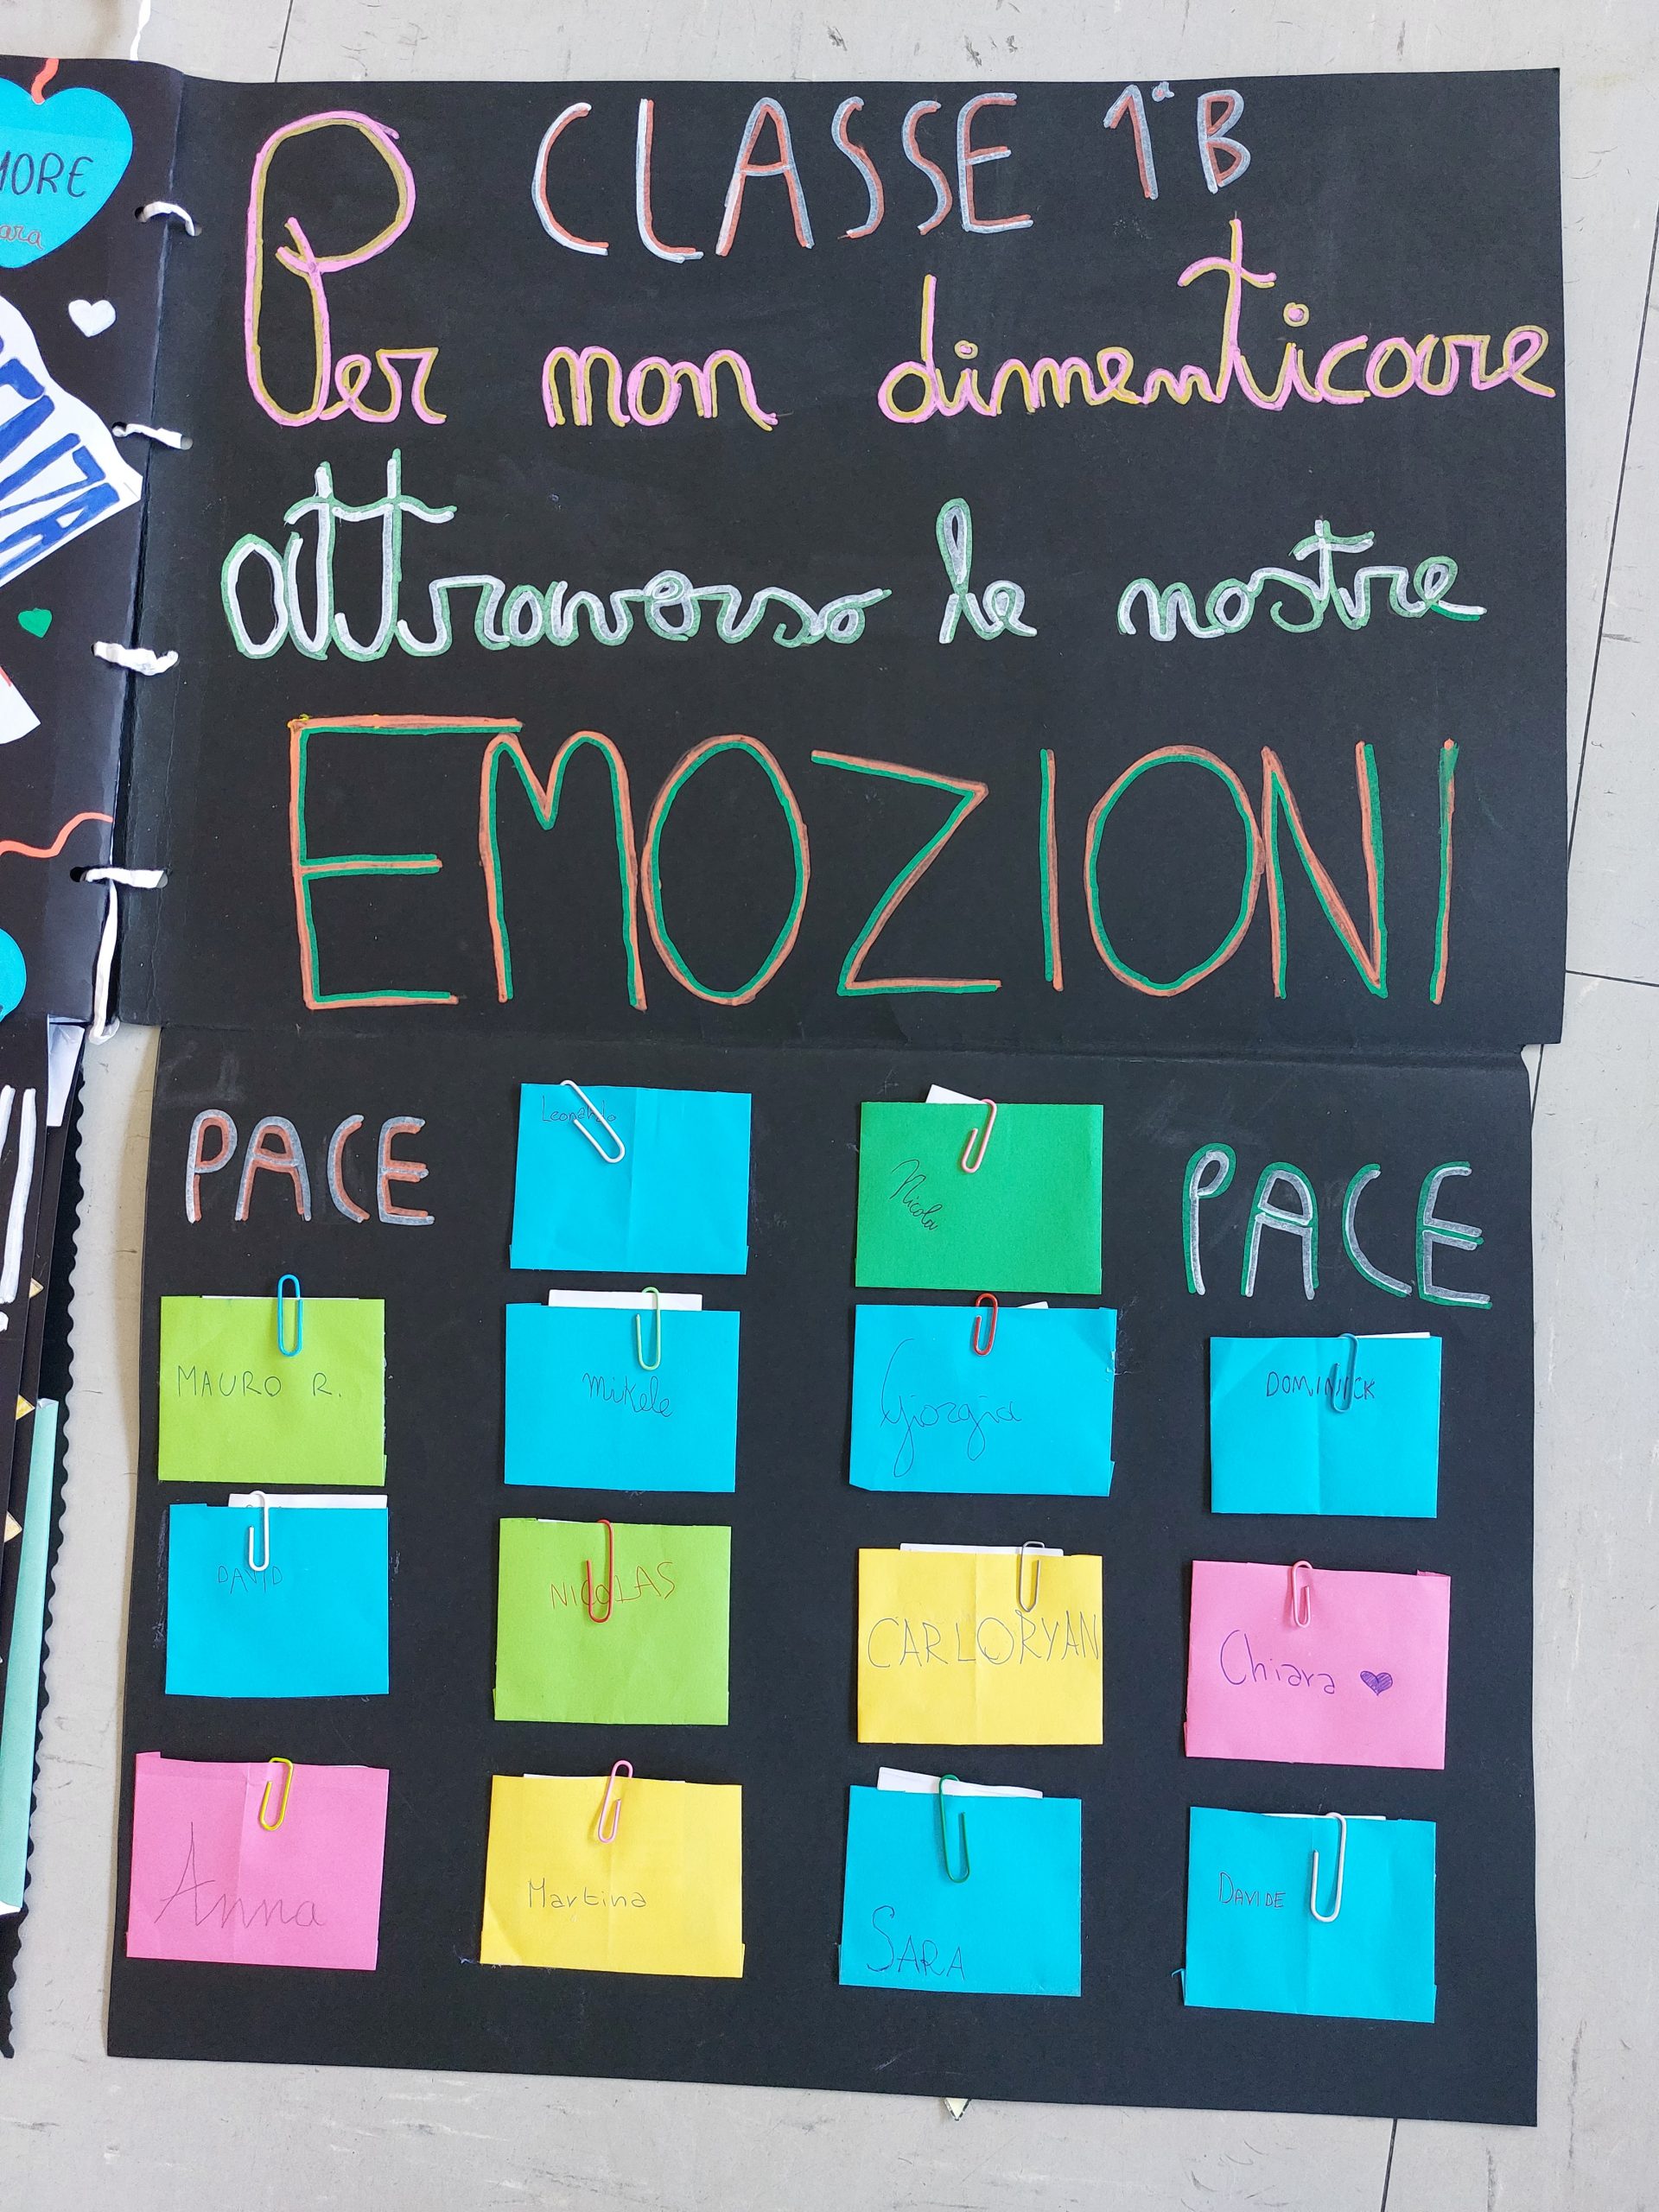 CLASSE 1ª B
Per non dimenticare
attraverso le nostre
EMOZIONI
PACE
Leonardo
Nicola
PACE
MAURO R.
Mikele
Giorgia
DOMINICK
DAVID
NICOLAS
CARLORYAN
Chiara
Anna
Martina
SARA
DAVIDE
MORE
ara
ENZA